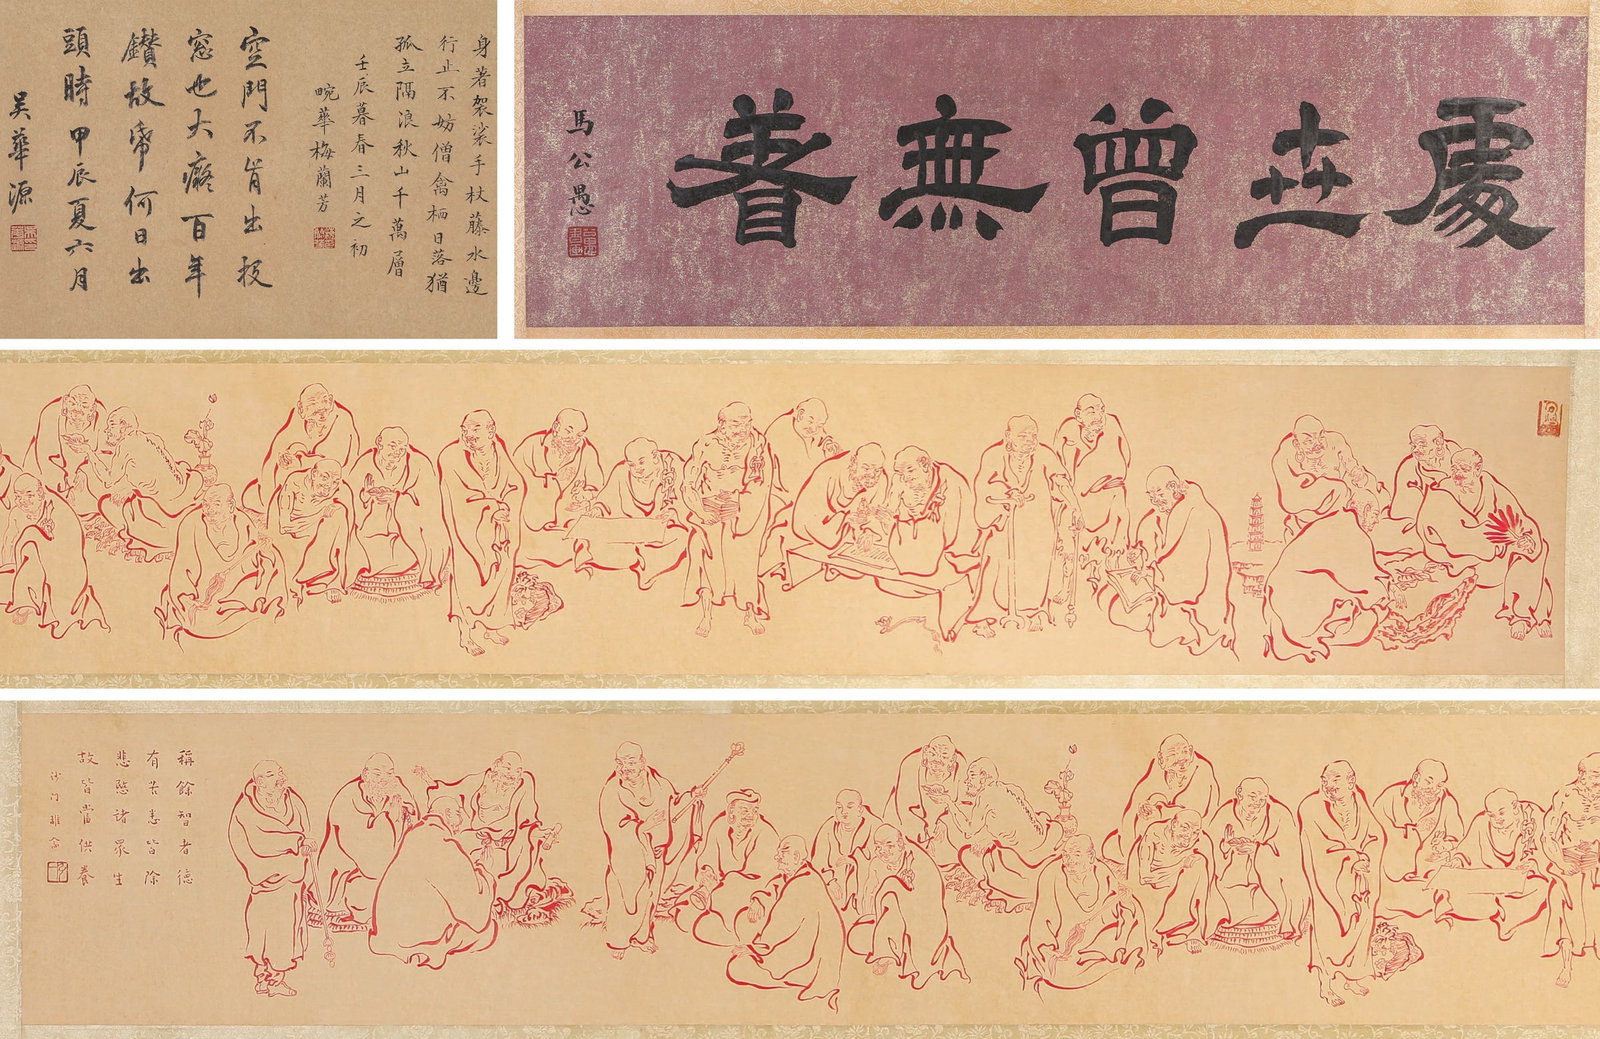 處世曾無着
馬公愚
身著袈裟手杖藤水邊
行止不妨僧禽栖日落猶
孤立隔浪秋山千萬層
壬辰暮春三月之初
畹華梅蘭芳
空門不肯出投
窓也大癡百年
鑽故帋何日出
頭時 甲辰夏六月
吳華源
稱餘智者德
有苦患皆除
悲愍諸眾生
故皆當供養
沙門